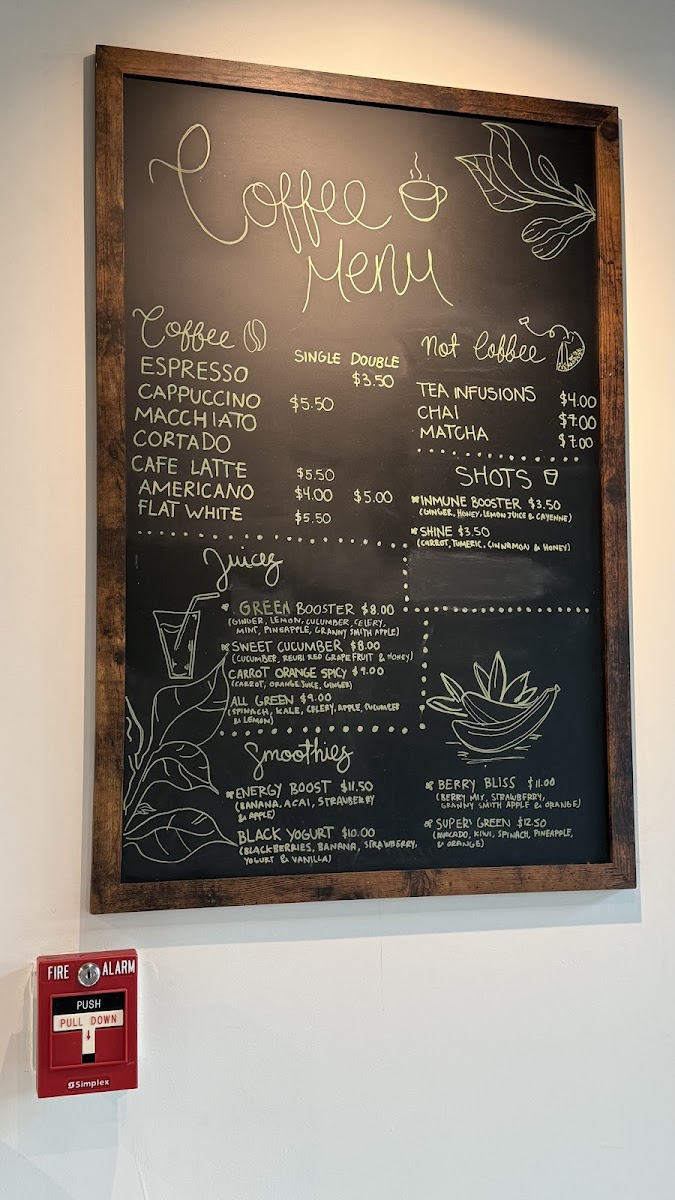 Coffee
Menu
Coffee
SINGLE DOUBLE
ESPRESSO $3.50
CAPPUCCINO $5.50
MACCHIATO
CORTADO
CAFE LATTE $5.50
AMERICANO $4.00 $5.00
FLAT WHITE $5.50
Not Coffee
TEA INFUSIONS $4.00
CHAI $7.00
MATCHA $7.00
SHOTS
INMUNE BOOSTER $3.50
(GINGER, HONEY, LEMON JUICE & CAYENNE)
SHINE $3.50
(CARROT, TUMERIC, CINNAMON & HONEY)
Juices
GREEN BOOSTER $8.00
(GINGER, LEMON, CUCUMBER, CELERY,
MINT, PINEAPPLE, GRANNY SMITH APPLE)
SWEET CUCUMBER $8.00
(CUCUMBER, REUBI RED GRAPEFRUIT & HONEY)
CARROT ORANGE SPICY $9.00
(CARROT, ORANGE JUICE, GINGER)
ALL GREEN $9.00
(SPINACH, KALE, CELERY, APPLE, CUCUMBER
& LEMON)
Smoothies
ENERGY BOOST $11.50
(BANANA, ACAI, STRAWBERRY
& APPLE)
BLACK YOGURT $10.00
(BLACKBERRIES, BANANA, STRAWBERRY,
YOGURT & VANILLA)
BERRY BLISS $11.00
(BERRY MIX, STRAWBERRY,
GRANNY SMITH APPLE & ORANGE)
SUPER GREEN $12.50
(AVOCADO, KIWI, SPINACH, PINEAPPLE,
& ORANGE)
FIRE ALARM
PUSH
PULL DOWN
Simplex